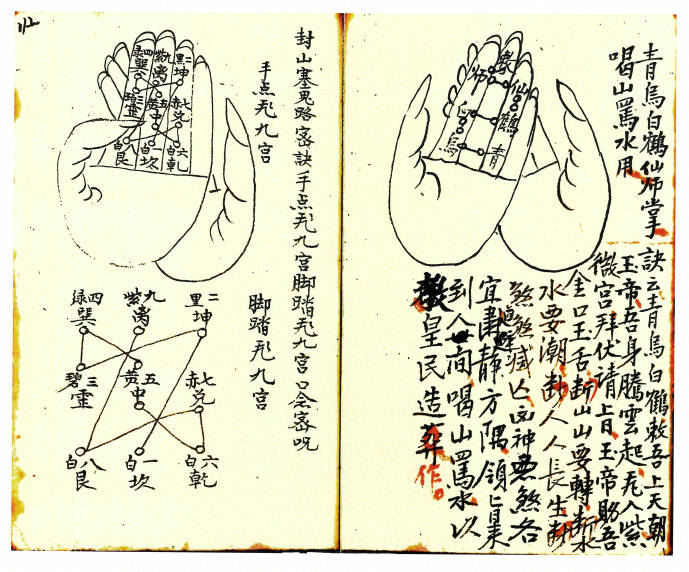 青烏白鶴仙师掌
喝山罵水用
訣云青烏白鶴教吾上天朝
玉帝吾身騰雲起飛入紫
微宮拜伏請上玉帝賜吾
金口玉舌断山山要轉断水
水要潮断人人長生断
煞煞滅亡凶神悪煞各
宜迴避肅静方隅領旨来
到人世间喝山罵水以
教皇民造葬作。
象
师
仙
白
鶴
烏
青
封山塞鬼路宻訣手点飛九宫脚踏飛九宫口念宻呪
手点飛九宫
四绿巽
九紫离
二黑坤
三碧震
五黄中
七赤兑
八白艮
一白坎
六白乾
脚踏飛九宫
四绿巽
九紫离
二黑坤
三碧震
五黄中
七赤兑
八白艮
一白坎
六白乾